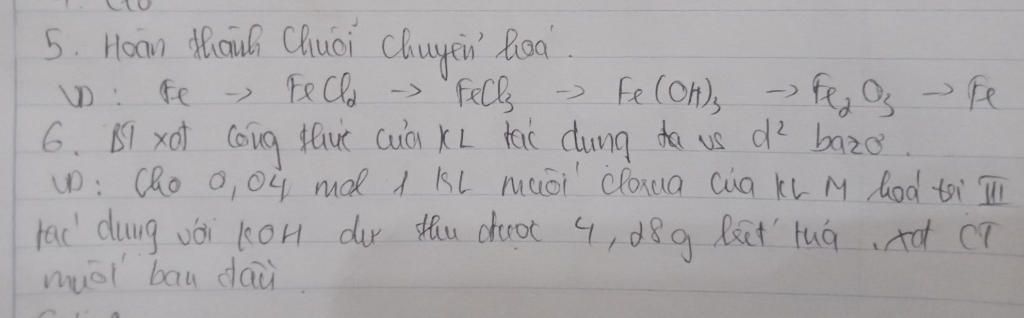 5. Hoàn thành Chuỗi Chuyển hoá.
VD: Fe -> FeCl2 -> FeCl3 -> Fe(OH)3 -> Fe2O3 -> Fe
6. BT xđ công thức của KL tác dung vs d² bazơ.
VD: Cho 0,04 mol 1 KL muối clorua của KL M hoá trị III
tác dung với KOH dư thu được 4,28g kết tủa. xđ CT
muối ban đầu